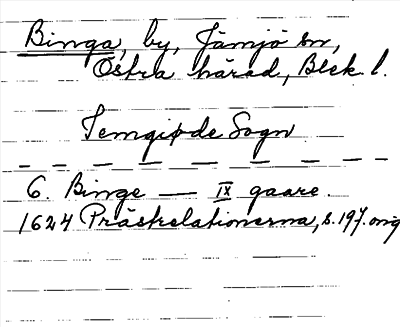 Binga, by, Jämjö sn,
Östra härad, Blek. l.
Jemgiøde Sogn
6. Binge — IX gaare.
1624 Prästrelationerna, s. 197. orig